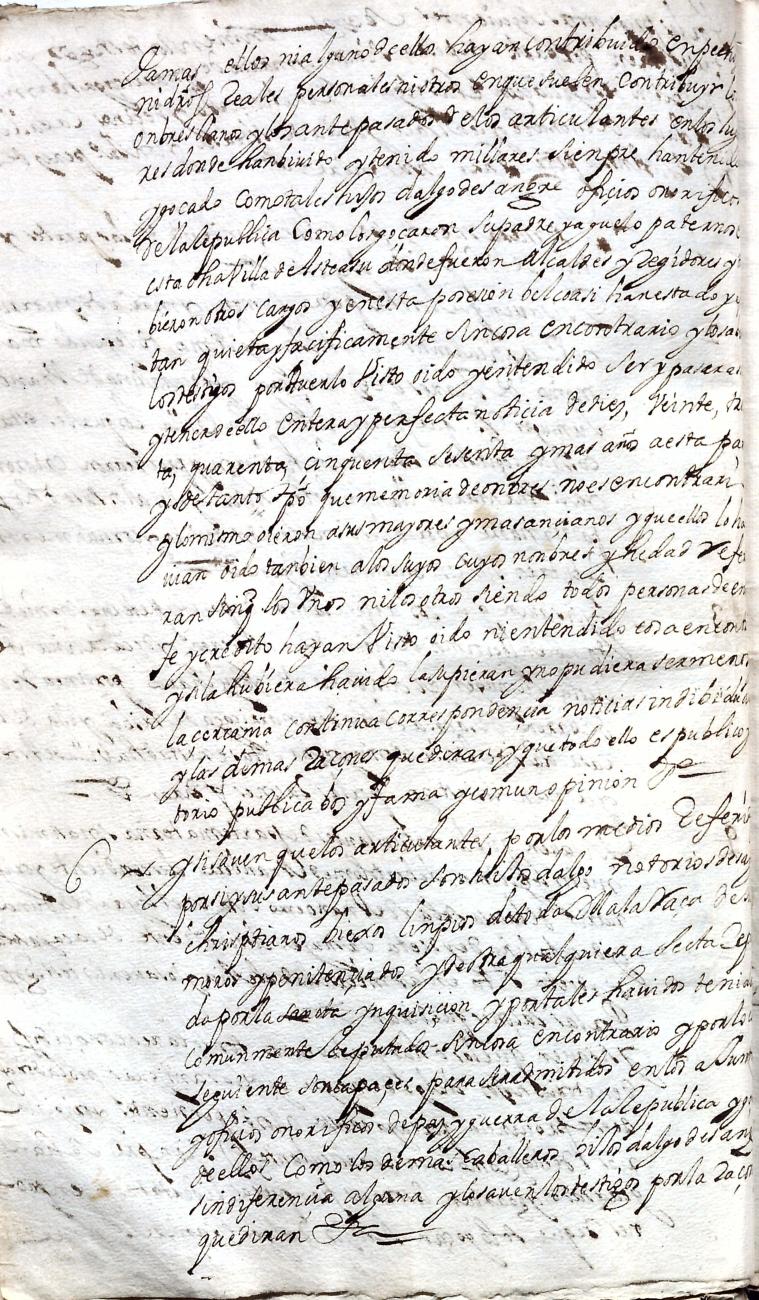 Jamas ellos ni alguno dello hayan contribuido en pech
ni dros Reales personales ni otros en que suelen contribuyr l
onbres llanos y los antepasados de los articulantes en los lug
res donde han bivido y tenido millares sienpre han tenid
y gocado como tales hijos dalgo de sangre oficios onorifico
de la Republica como los gocaron su padre y aguelo paternos
esta dha Villa de Asteasu donde fueron Alcaldes y Regidores y
bieron otros cargos y en esta posesion vel casi han estado y
tan quieta y pacificamente sin cosa en contrario y lo sa
los testigos por averlo visto oido y entendido ser y pasar a
y tener de ello entera y perfecta noticia de diez, veinte, tre
ta, quarenta, cinquenta sesenta y mas años a esta pa
y de tanto tpo que memoria de onbres no es en contrari
y lo mismo oieron a sus mayores y mas ancianos y que ellos lo ha
vian oido tanbien a los suyos cuyos nonbres y hedad refe
ran sin q los unos ni los otros siendo todos personas de en
fe y credito hayan visto oido ni entendido cosa en cont
y si la hubiera havido la supieran y no pudiera ser menos
la cercania continua correspondencia noticias indibidu
y las demas raçones que diran y que todo ello es publico
torio publica boz y fama y comun opinion
6 y si saven que los articulantes por los medios Referi
por si y sus antepasados son hijos dalgo notorios de sang
christianos biejos linpios de toda Mala Raça de
moros y penitenciados y de otra qualquiera secta Rep
da por la santa ynquisicion y por tales havidos tenid
comunmente Reputados sin cosa en contrario y por lo
seguiente son capaçes para ser admitidos en los
y oficios onorificos de paz y guerra de la Republica y g
de ellos como los demas caballeros hijos dalgo de sang
sin diferencia alguna y lo saven los testigos por la raço
que diran